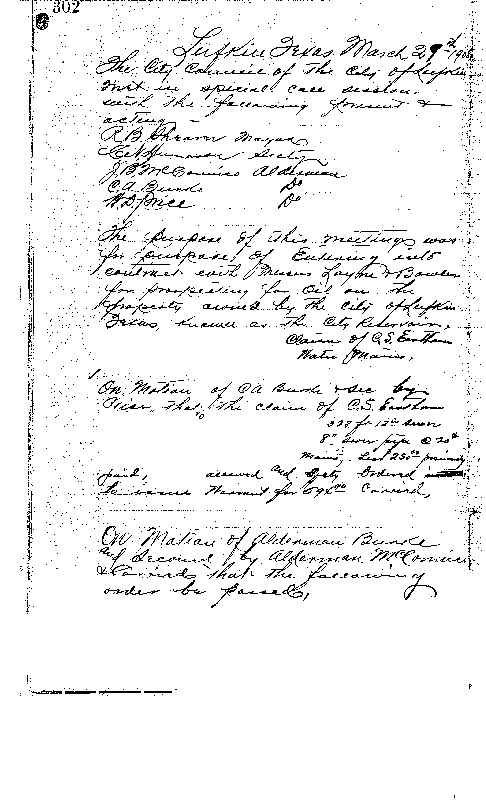 302
Lufkin Texas March 29th 190
The City Council of The City of Lufkin
met in special case session
with the following present &
acting –
R.B. Shearer Mayor
Secty
J.B. McConnico Alderman
C.A. Burke Do
W.D. Price Do
The purpose of this meeting was
for purpose of Entering into
contract with Messrs Layne & Bowler
for prospecting for Oil on the
property owned by the City of Lufkin
Texas, known as the City Reservoir,
Claim of C.S. Eastham
Water Mains,
On Motion of C.A. Burke & Sec by
Price, that the claim of C.S. Eastham
ft 12in sewer
8" Sewer pipe @ 20¢
Mains,
paid, allowed and Secty Ordered
to issue Warrant for Carried,
On Motion of Alderman Burke
and Second by Alderman McConnico
& Carried that the following
order be passed,